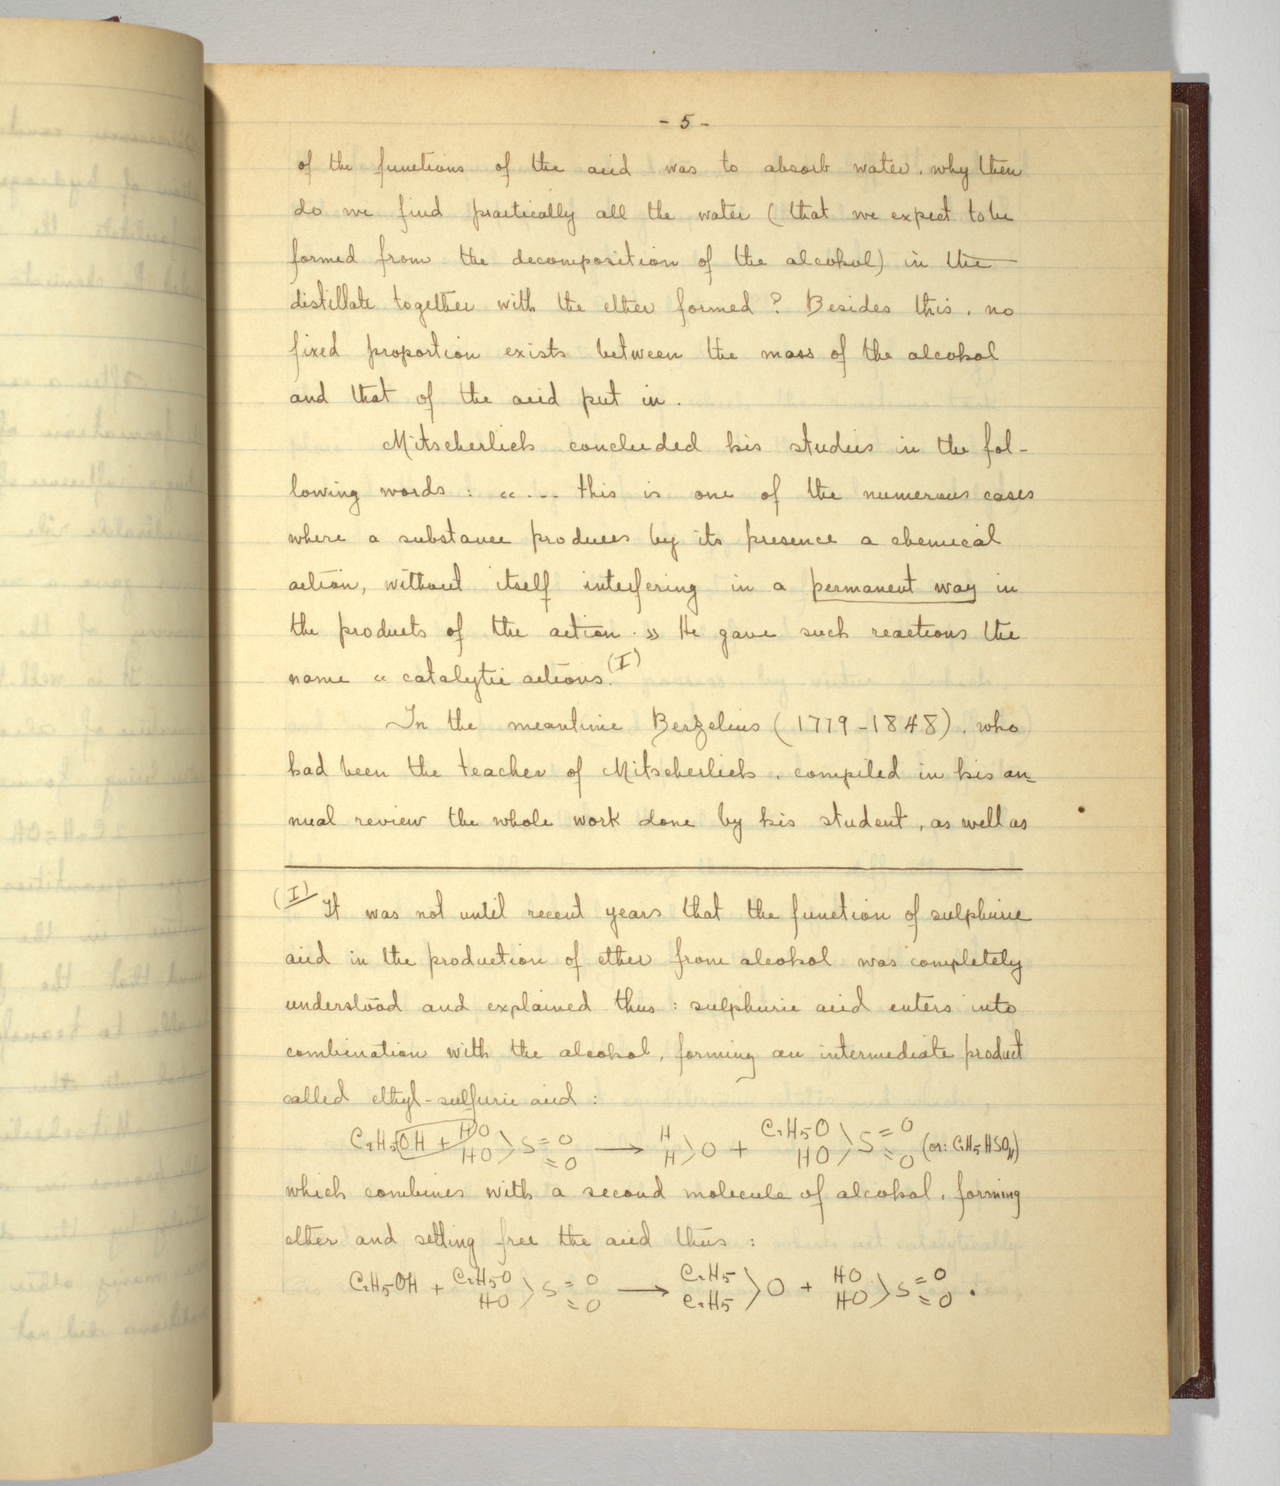 - 5 -
of the functions of the acid was to absorb water, why then
do we find practically all the water (that we expect to be
formed from the decomposition of the alcohol) in the
distillate together with the ether formed? Besides this, no
fixed proportion exists between the mass of the alcohol
and that of the acid put in.
Mitscherlich concluded his studies in the fol-
lowing words: «.... this is one of the numerous cases
where a substance produces by its presence a chemical
action, without itself interfering in a permanent way in
the products of the action.» He gave such reactions the
name « catalytic actions.(I)
In the meantime Berzelius (1779-1848), who
had been the teacher of Mitscherlich, compiled in his an-
nual review the whole work done by his student, as well as
(I) It was not until recent years that the function of sulphuric
acid in the production of ether from alcohol was completely
understood and explained thus: sulphuric acid enters into
combination with the alcohol, forming an intermediate product
called ethyl-sulfuric acid:
C₂H₅OH + HO HO > S =O =O ⟶ H H > O + C₂H₅O HO > S =O =O (or: C₂H₅HSO₄)
which combines with a second molecule of alcohol, forming
ether and setting free the acid thus:
C₂H₅OH + C₂H₅O HO > S =O =O ⟶ C₂H₅ C₂H₅ > O + HO HO > S =O =O.